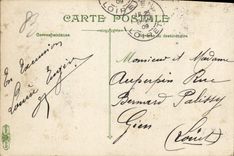 83
CARTE POSTALE
Correspondance
Adresse du destinataire
LOIRET
LOIRET
En Excursion
Louise Eugène
Monsieur et Madame
Auperpin Rue
Bernard Palissy
Gien
(Loiret)